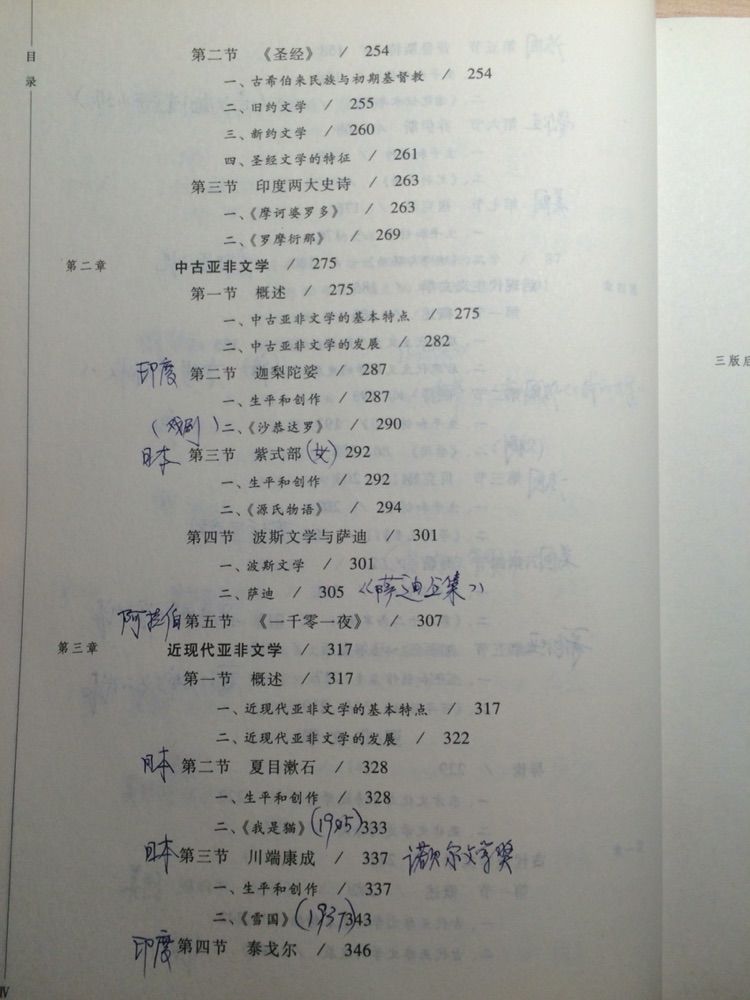 目录
第二节 《圣经》 / 254
一、古希伯来民族与初期基督教 / 254
二、旧约文学 / 255
三、新约文学 / 260
四、圣经文学的特征 / 261
第三节 印度两大史诗 / 263
一、《摩诃婆罗多》 / 263
二、《罗摩衍那》 / 269
第二章 中古亚非文学 / 275
第一节 概述 / 275
一、中古亚非文学的基本特点 / 275
二、中古亚非文学的发展 / 282
印度 第二节 迦梨陀娑 / 287
一、生平和创作 / 287
(戏剧) 二、《沙恭达罗》 / 290
日本 第三节 紫式部 (女) 292
一、生平和创作 / 292
二、《源氏物语》 / 294
第四节 波斯文学与萨迪 / 301
一、波斯文学 / 301
二、萨迪 / 305 《萨迪全集》
阿拉伯 第五节 《一千零一夜》 / 307
第三章 近现代亚非文学 / 317
第一节 概述 / 317
一、近现代亚非文学的基本特点 / 317
二、近现代亚非文学的发展 / 322
日本 第二节 夏目漱石 / 328
一、生平和创作 / 328
二、《我是猫》 (1905) 333
日本 第三节 川端康成 / 337 诺贝尔文学奖
一、生平和创作 / 337
二、《雪国》 (1937) 343
印度 第四节 泰戈尔 / 346
IV
三版后